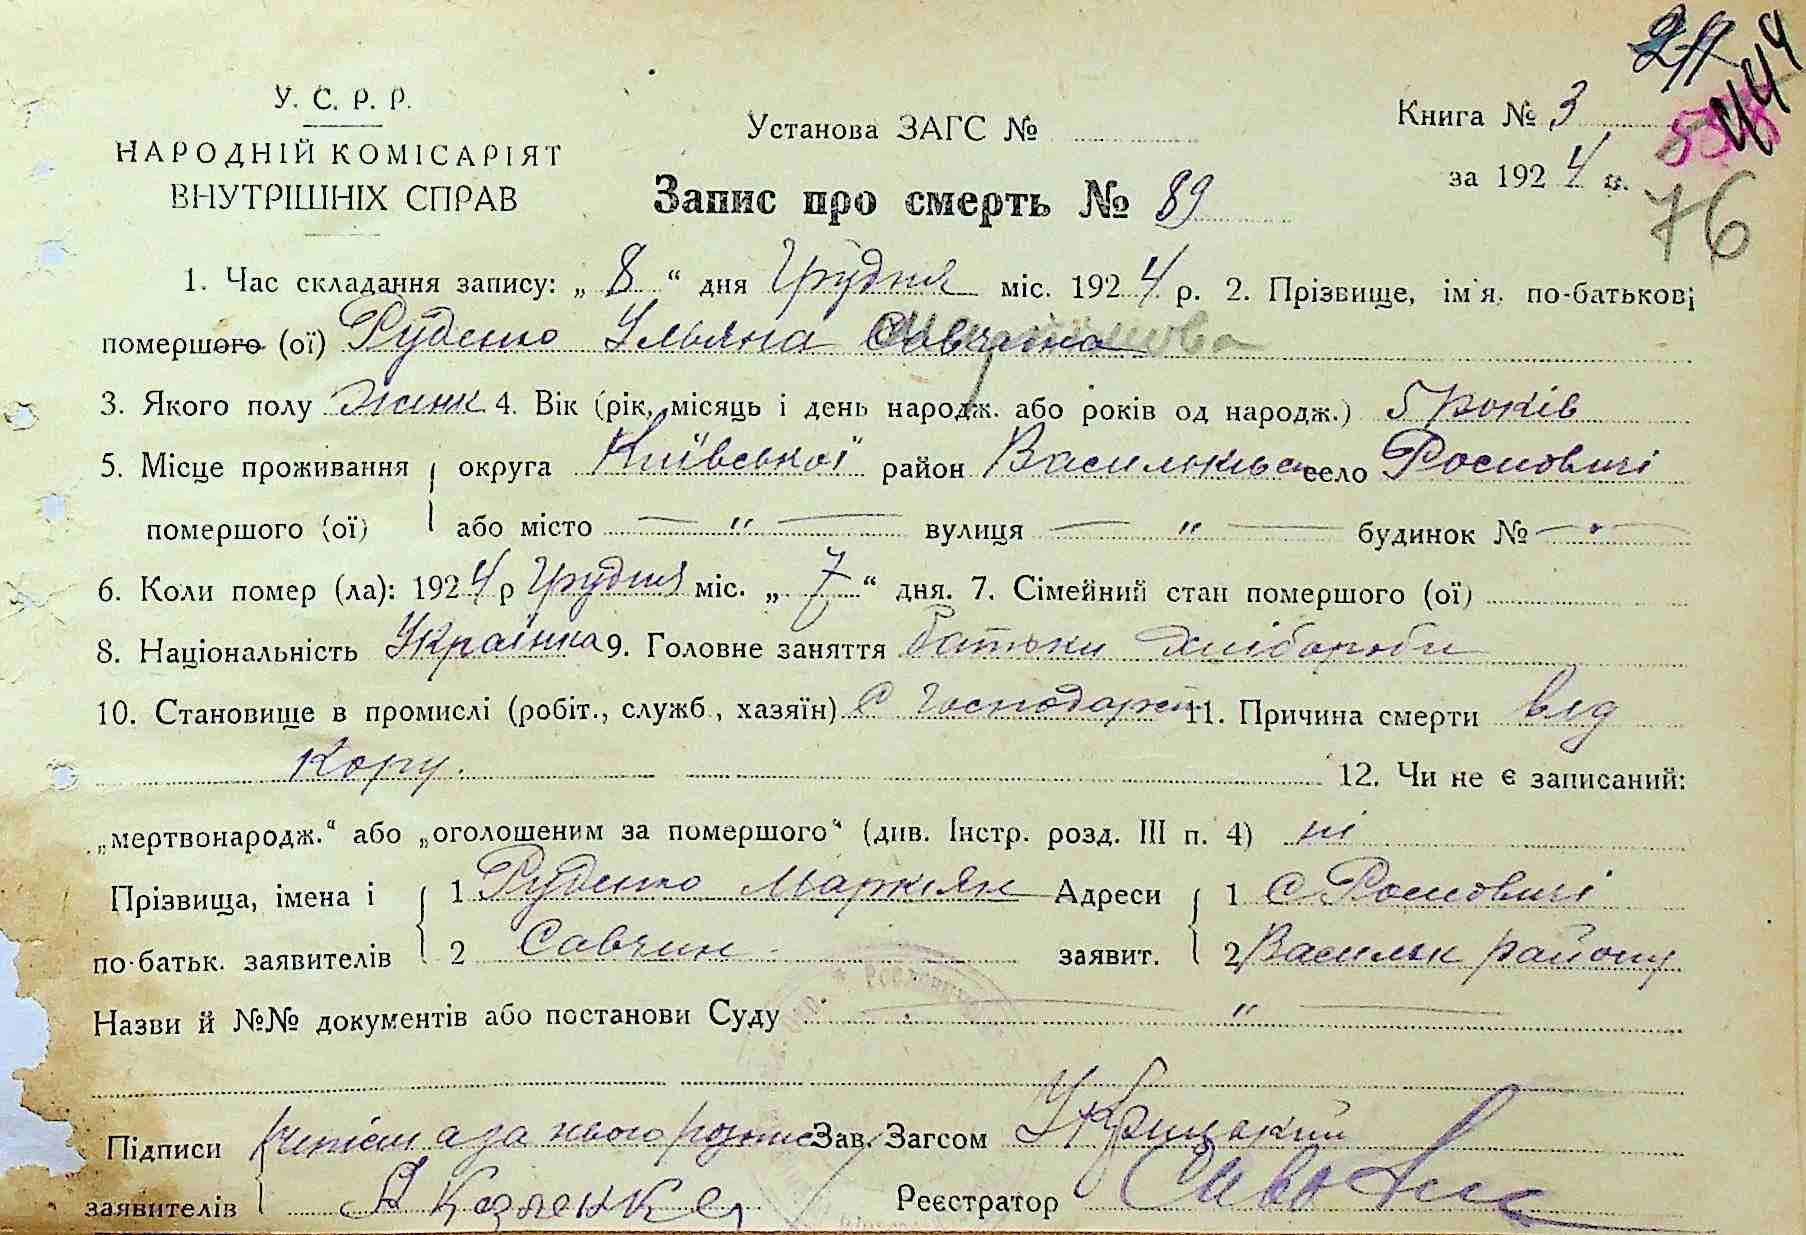 У. С. Р. Р.
НАРОДНІЙ КОМІСАРІЯТ
ВНУТРІШНІХ СПРАВ
Установа ЗАГС №
Книга № 3
за 1924 р.
444
76
Запис про смерть № 89
1. Час складання запису: „ 8 “ дня Грудня міс. 1924 р. 2. Прізвище, ім'я, по-батькові
помершого (ої) Руденко Уляна
3. Якого полу Жінк 4. Вік (рік, місяць і день народж. або років од народж.) 5 років
5. Місце проживання округа Київської район Васильківс село Росновичі
помершого (ої) або місто — " — вулиця — " — будинок № —
6. Коли помер (ла): 1924 р Грудня міс. „ 7 “ дня. 7. Сімейний стан помершого (ої)
8. Національність Українка 9. Головне заняття батьки хлібороби
10. Становище в промислі (робіт., служб., хазяїн) С господарст 11. Причина смерти від
кору. 12. Чи не є записаний:
„мертвонародж.“ або „оголошеним за помершого“ (див. Інстр. розд. III п. 4) ні
Прізвища, імена і 1 Руденко Маркіян Адреси 1 С Росновичі
по-батьк. заявителів 2 Савчин заявит. 2 Васильк району
Назви й №№ документів або постанови Суду — " —
Підписи а за нього Зав. Загсом
заявителів Реєстратор